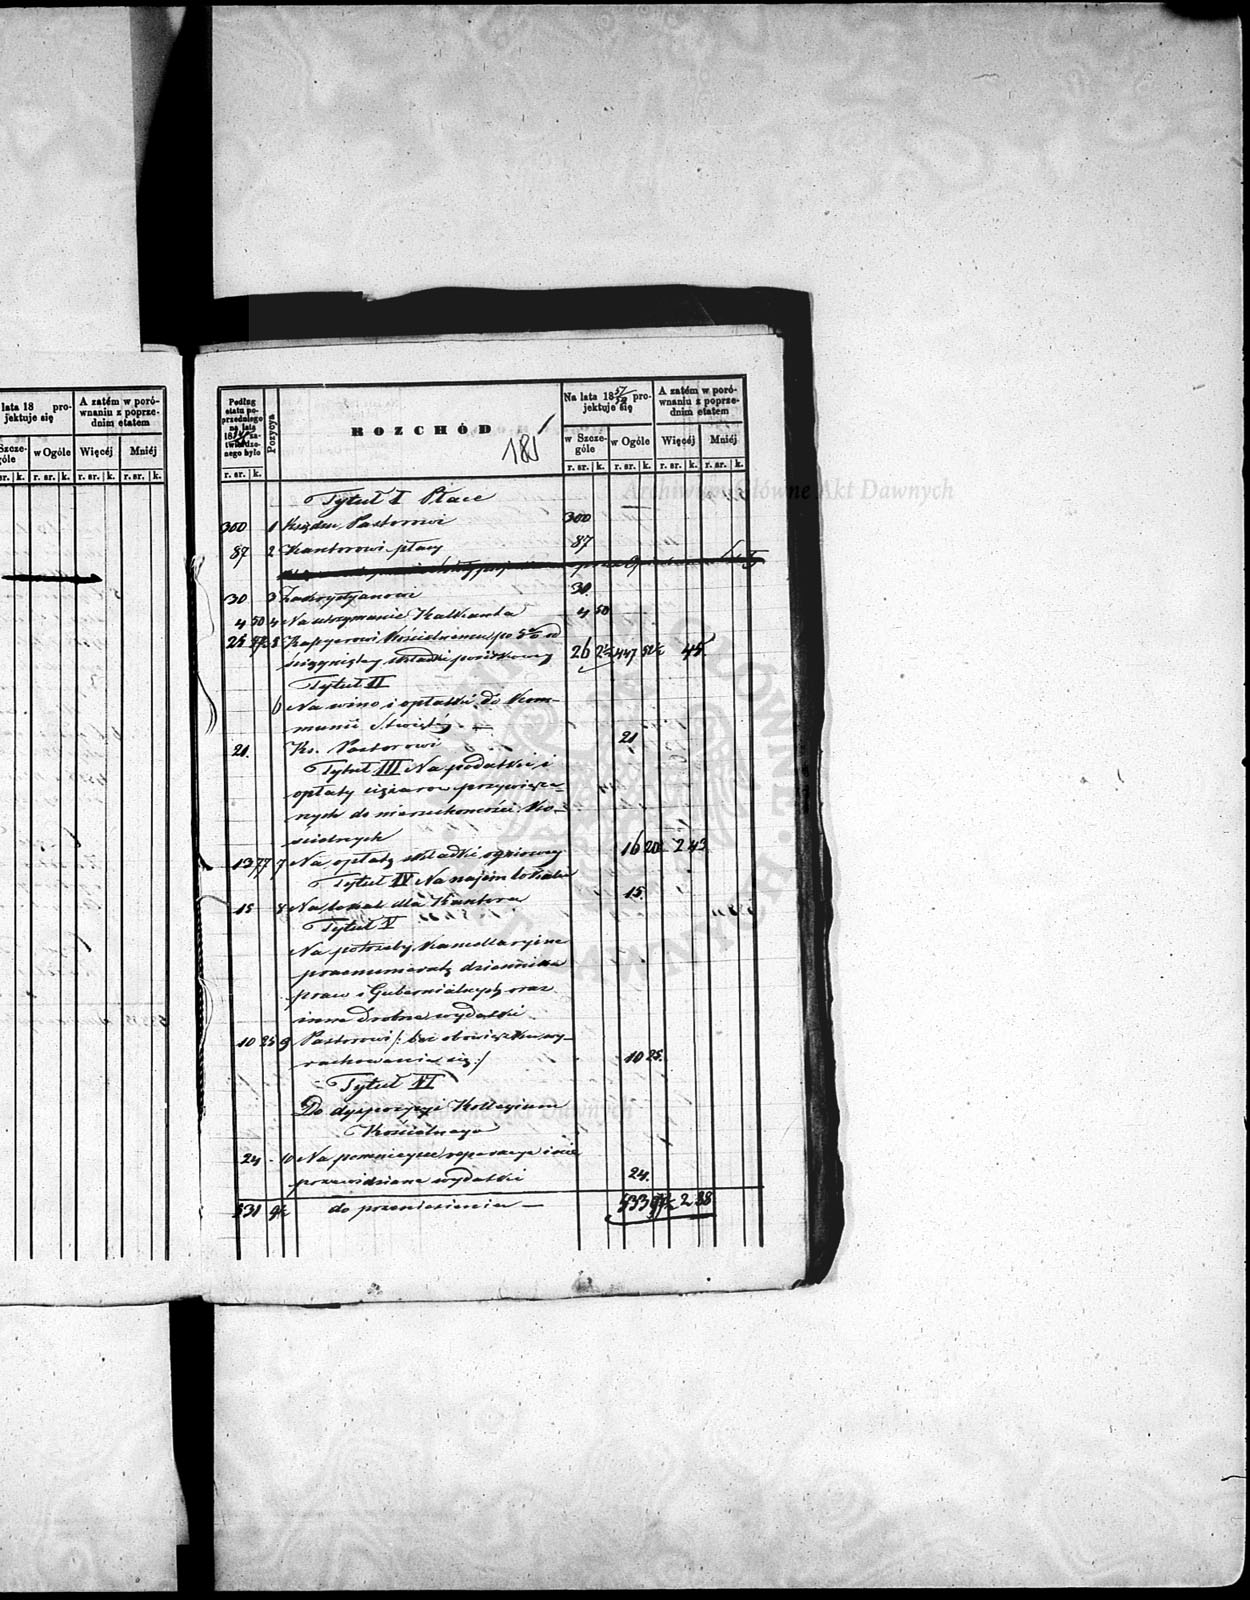 lata 18 pro-
jektuje się
A zatém w poró-
wnaniu z poprze-
dnim etatem
Szcze-
góle
w Ogóle
Więcéj
Mniéj
sr. k. r. sr. k. r. sr. k. r. sr. k.
Podług
etatu po-
przedniego
na lata
18 za-
twierdzo-
nego było
Pozycya
ROZCHÓD
185
Na lata 18 57/59 pro-
jektuje się
A zatém w poró-
wnaniu z poprze-
dnim etatem
w Szcze-
góle
w Ogóle
Więcéj
Mniéj
r. sr. k.
r. sr. k. r. sr. k. r. sr. k. r. sr. k.
Tytuł I Płace
300 1 Księdzu Pastorowi 300
87 2 Kantorowi płacy 87
30 3 Zakrystyanowi 30
4 50 4 Na utrzymanie Kalkanta 4 50
25 5 Kasyerowi Kościelnemu po 5 % od
ściągniętej składki 26 2½ 447 52½ 45
Tytuł II
6 Na wino i opłatki do Kom-
munii Świętéj
21 Ks. Pastorowi 21
Tytuł III Na podatki i
opłaty ciężarow przywiąza-
nych do nieruchomości Ko-
ścielnych
13 77 7 Na opłatę składki ogniowey 16 20 2 43
Tytuł IV Na najem lokalu
15 8 Na lokal dla Kantora 15
Tytuł V
Na potrzeby Kancellaryjne
prenumeratę dziennika
praw i Gubernialnych oraz
inne drobne wydatki
10 25 9 Pastorowi /: bez obowiązku wy-
rachowania się :/ 10 25
Tytuł VI
Do dyspozycyi Kollegium
Kościelnego
24 10 Na pomniejsze reparacye i nie
przewidziane wydatki 24
531 9½ do przeniesienia 533 97½ 2 88
Archiwum Główne Akt Dawnych